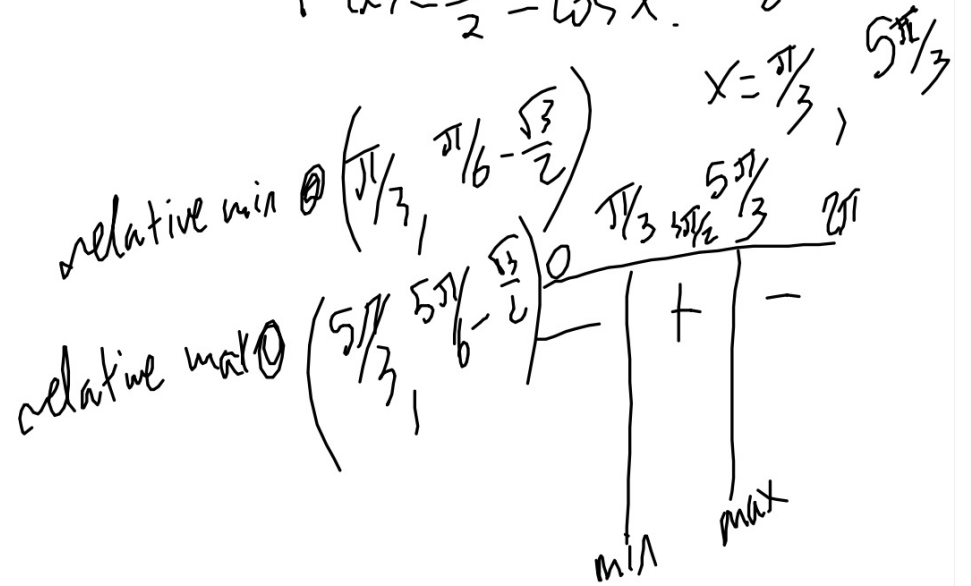 2 - cos x.
x = π/3, 5π/3
relative min @ (π/3, π/6 - √3/2)
relative max @ (5π/3, 5π/6 - √3/2)
0 π/3 3π/2 5π/3 2π
- + -
min max